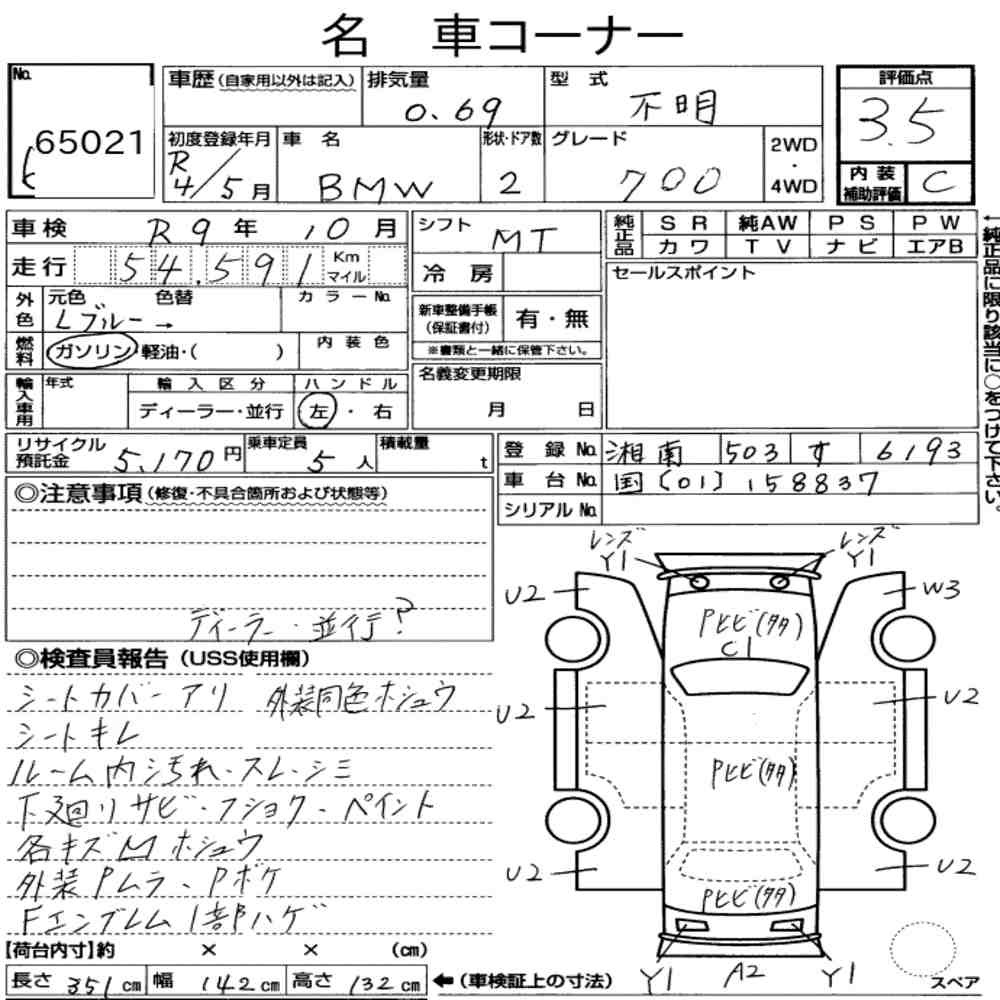 名 車コーナー
No.
65021
車歴 (自家用以外は記入)
排気量
0.69
型 式
不明
初度登録年月
R
4/5月
車 名
BMW
形状・ドア数
2
グレード
700
2WD
・
4WD
評価点
3.5
内 装
補助評価
C
車検 R9年 10月
走行 54,591 Km
マイル
外色 元色 色替 カラーNo.
Lブルー→
燃料 ガソリン・軽油・( )
内 装 色
輸入車用 年式
輸 入 区 分
ディーラー・並行
ハ ン ド ル
左 ・ 右
シフト MT
冷 房
新車整備手帳
(保証書付)
有・無
※書類と一緒に保管下さい。
名義変更期限
月 日
純正品
SR 純AW PS PW
カワ TV ナビ エアB
セールスポイント
←純正品に限り該当に○をつけて下さい。
リサイクル
預託金 5,170円
乗車定員
5人
積載量
t
登 録 No. 湘南 503 す 6193
車 台 No. 国〔01〕158837
シリアル No.
◎注意事項 (修復・不具合箇所および状態等)
ディーラー・並行?
◎検査員報告 (USS使用欄)
シートカバーアリ 外装同色ホシュウ
シートキレ
ルーム内汚れ・スレ・シミ
下廻りサビ・フショク・ペイント
各キズMホシュウ
外装Pムラ・Pボケ
Fエンブレム1部ハゲ
【荷台内寸】約 × × (cm)
長さ 351cm 幅 142cm 高さ 132cm ←(車検証上の寸法)
レンズ
Y1
レンズ
Y1
U2
W3
Pヒビ(タタ)
C1
U2
U2
Pヒビ(タタ)
U2
U2
Pヒビ(タタ)
Y1
A2
Y1
スペア